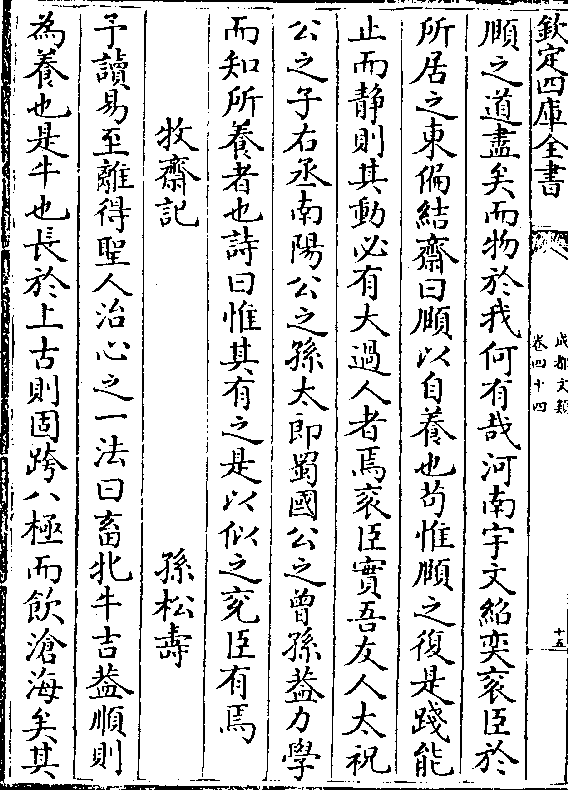 欽定四庫全書
成都文類
卷四十四
十五
順之道盡矣而物於我何有哉河南宇文紹奕衮臣於
所居之東偏結齋曰頤以自養也茍惟頤之復是踐能
止而静則其動必有大過人者焉衮臣實吾友人太祝
公之子右丞南陽公之孫太師蜀國公之曾孫葢力學
而知所養者也詩曰惟其有之是以似之兖臣有焉
牧齋記
孫松壽
予讀易至離得聖人治心之一法曰畜牝牛吉葢順則
為養也是牛也長於上古則固跨八極而飲滄海矣其